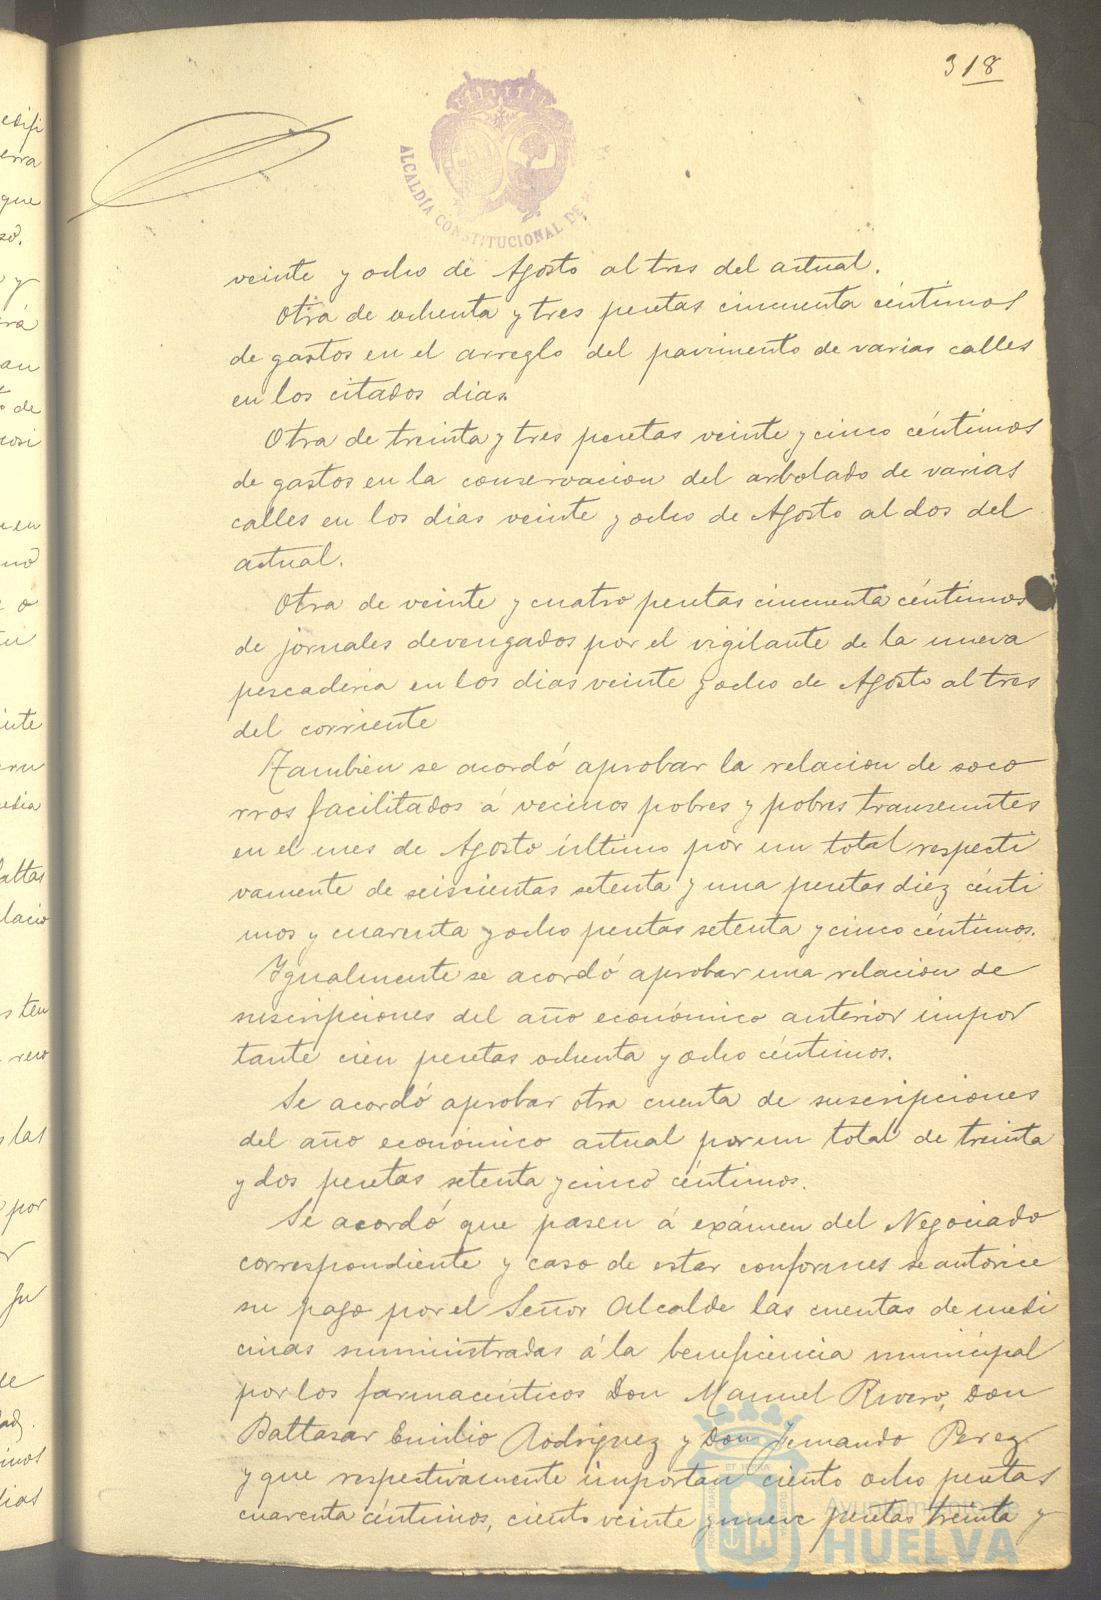 318
ALCALDÍA CONSTITUCIONAL DE
veinte y ocho de Agosto al tres del actual.
Otra de ochenta y tres pesetas cincuenta céntimos
de gastos en el arreglo del pavimento de varias calles
en los citados dias.
Otra de treinta y tres pesetas veinte y cinco céntimos
de gastos en la conservacion del arbolado de varias
calles en los dias veinte y ocho de Agosto al dos del
actual.
Otra de veinte y cuatro pesetas cincuenta céntimos
de jornales devengados por el vigilante de la nueva
pescaderia en los dias veinte y ocho de Agosto al tres
del corriente
Tambien se acordó aprobar la relacion de soco
rros facilitados á vecinos pobres y pobres transeuntes
en el mes de Agosto último por un total respecti
vamente de seiscientas setenta y una pesetas diez cénti
mos y cuarenta y ocho pesetas setenta y cinco céntimos.
Igualmente se acordó aprobar una relacion de
suscripciones del año económico anterior impor
tante cien pesetas ochenta y ocho céntimos.
Se acordó aprobar otra cuenta de suscripciones
del año económico actual por un total de treinta
y dos pesetas setenta y cinco céntimos.
Se acordó que pasen á exámen del Negociado
correspondiente y caso de estar conformes se autorice
su pago por el Señor Alcalde las cuentas de medi
cinas suministradas á la beneficencia municipal
por los farmacéuticos Don Manuel Rivero, Don
Baltasar Emilio Rodriguez y Don Fernando Perez
y que respectivamente importan ciento ocho pesetas
cuarenta céntimos, ciento veinte y nueve pesetas treinta y
Ayuntamiento de
HUELVA